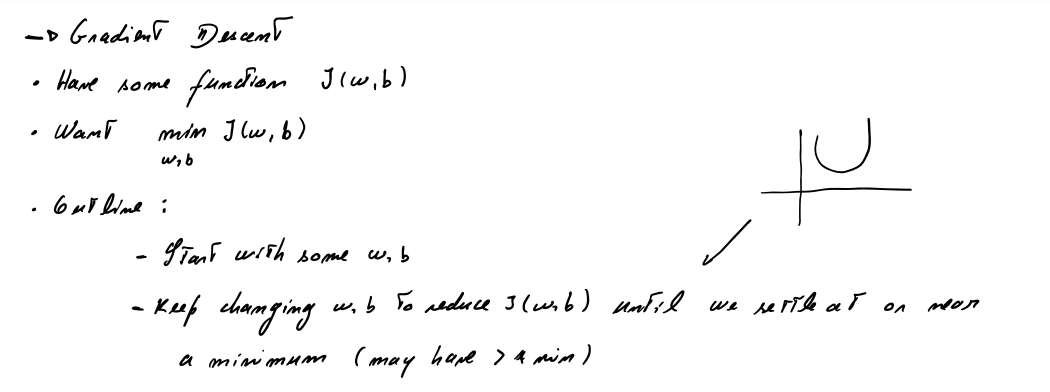 → Gradient Descent
• Have some function J(w,b)
• Want min J(w,b)
w,b
• Outline :
- Start with some w, b
- Keep changing w, b to reduce J(w,b) until we settle at or near
a minimum (may have > 1 min)